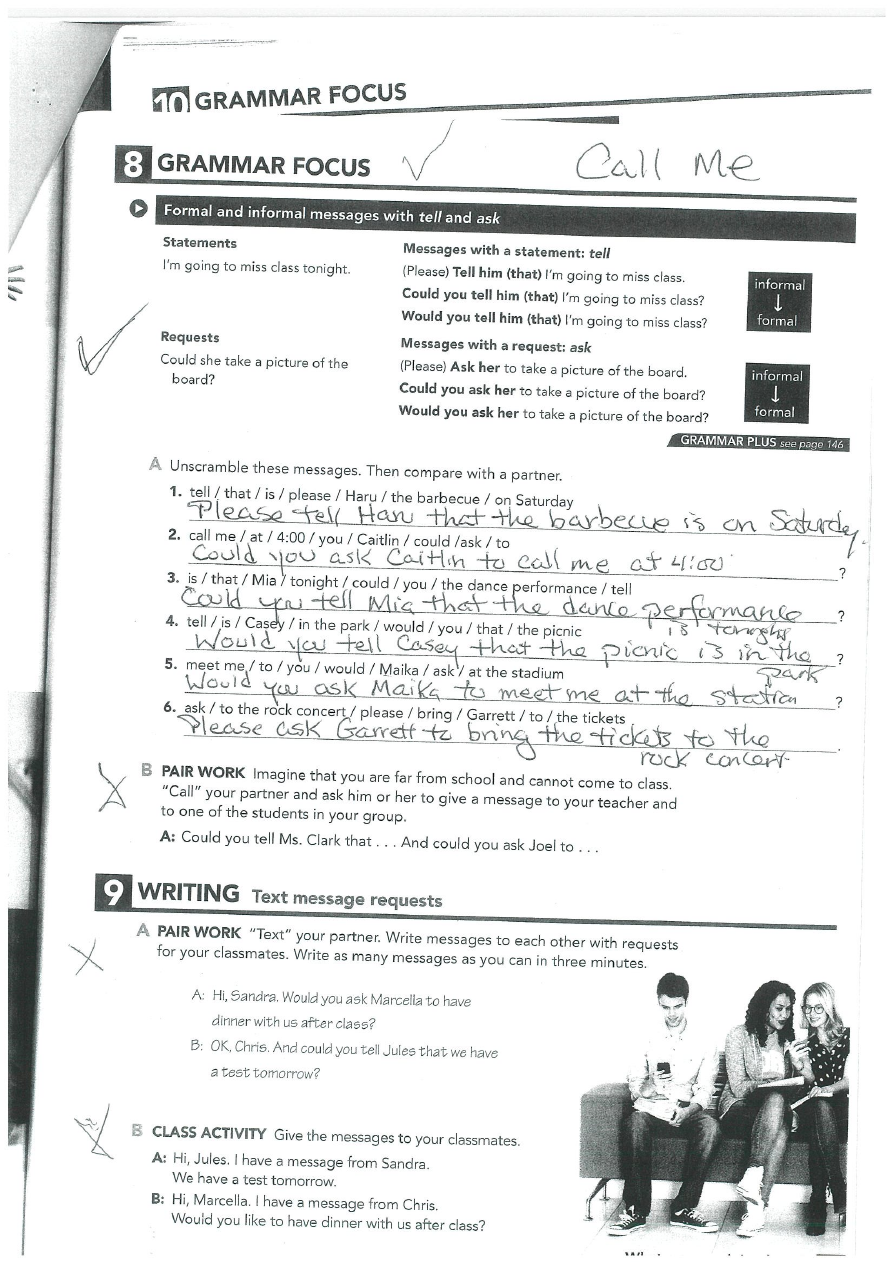 10 GRAMMAR FOCUS
8 GRAMMAR FOCUS Call Me
Formal and informal messages with tell and ask
Statements
I'm going to miss class tonight.
Messages with a statement: tell
(Please) Tell him (that) I'm going to miss class.
Could you tell him (that) I'm going to miss class?
Would you tell him (that) I'm going to miss class?
informal
↓
formal
Requests
Could she take a picture of the
board?
Messages with a request: ask
(Please) Ask her to take a picture of the board.
Could you ask her to take a picture of the board?
Would you ask her to take a picture of the board?
informal
↓
formal
GRAMMAR PLUS see page 146
A Unscramble these messages. Then compare with a partner.
1. tell / that / is / please / Haru / the barbecue / on Saturday
Please tell Haru that the barbecue is on Saturday.
2. call me / at / 4:00 / you / Caitlin / could /ask / to
Could you ask Caitlin to call me at 4:00 ?
3. is / that / Mia / tonight / could / you / the dance performance / tell
Could you tell Mia that the dance performance ?
is tonight
4. tell / is / Casey / in the park / would / you / that / the picnic
Would you tell Casey that the picnic is in the ?
park
5. meet me / to / you / would / Maika / ask / at the stadium
Would you ask Maika to meet me at the station ?
6. ask / to the rock concert / please / bring / Garrett / to / the tickets
Please ask Garrett to bring the tickets to the .
rock concert
B PAIR WORK Imagine that you are far from school and cannot come to class.
"Call" your partner and ask him or her to give a message to your teacher and
to one of the students in your group.
A: Could you tell Ms. Clark that . . . And could you ask Joel to . . .
9 WRITING Text message requests
A PAIR WORK "Text" your partner. Write messages to each other with requests
for your classmates. Write as many messages as you can in three minutes.
A: Hi, Sandra. Would you ask Marcella to have
dinner with us after class?
B: OK, Chris. And could you tell Jules that we have
a test tomorrow?
B CLASS ACTIVITY Give the messages to your classmates.
A: Hi, Jules. I have a message from Sandra.
We have a test tomorrow.
B: Hi, Marcella. I have a message from Chris.
Would you like to have dinner with us after class?